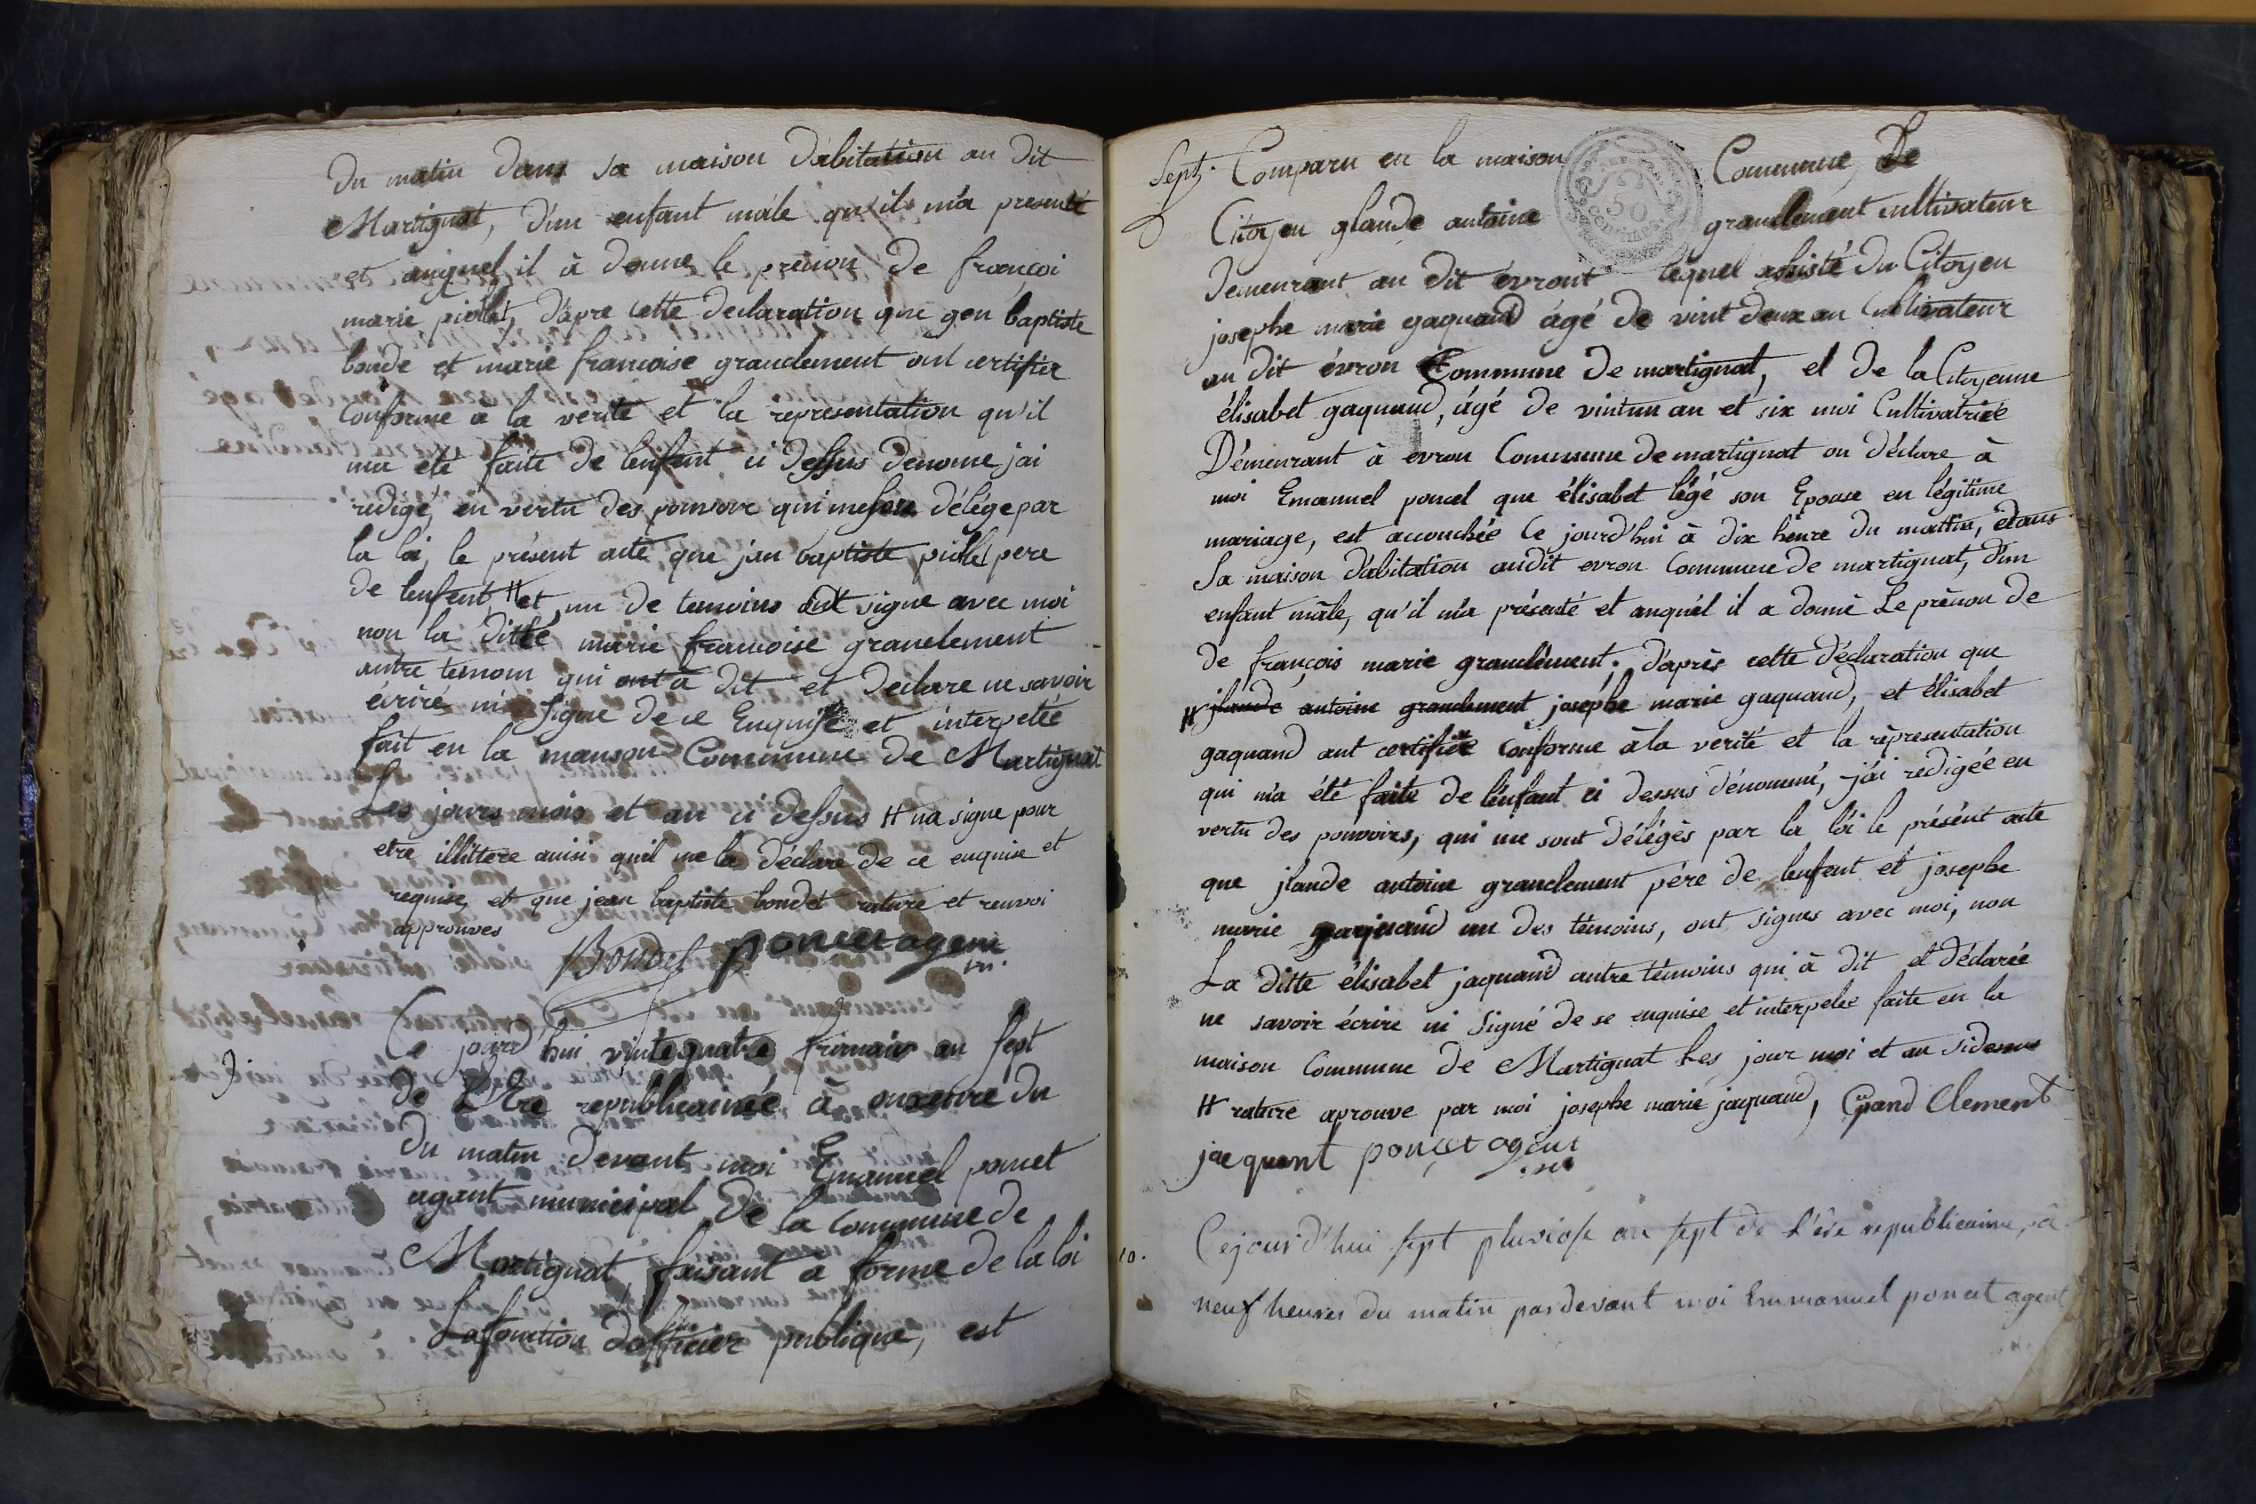 du matin dans sa maison d'abitation au dit
Martignat, d'un enfant mâle qu'il m'a presenté
et auquel il à donne le prénon de françoi
marie piollet, d'apre cette declaration que gen baptiste
bonde et marie francoise grandement ont certifier
Conforme à la verité et la representation qu'il
ma eté faite de lenfant ci dessus denome jai
redigé, en vertu des pouvoir qui me sons délége par
la loi, le présent acte, que jan baptiste piollet pere
de lenfent, # et un de temoins ont signe avec moi
non la ditte marie francoise granclement
autre temoin qui ont a dit et declare ne savoir
écriré ni signe de ce Enquise et interpellé
fait en la manson Commune de Martignat
Les jours mois et an ci dessus # na signe pour
etre illittere ainsi quil me la déclare de ce enquise et
requise, et que jean baptiste bondet rature et renvoi
approuves
Bondet poncet agent
m.
9
Ce jourd'hui vintequatre frimaire an sept
de L'Ere republicainée à onzeure du
du matin devant moi Emanuel poncet
agant municipal de la commune de
Martignat, faisant à forme de la loi
La fonction d'officier publique, est
Sept.
Comparu en la maison Commune, Le
50
Citoyen glaude antoine granclement cultivateur
demeurant au dit évront lequel assisté du Citoyen
josephe marie gaquand âgé de vint deux an Cultivateur
au dit évron Commune de martignat, et de la Citoyenne
élisabet gaquand, âgé de vintun an et six moi Cultivatrice
Démeurant à evron Commune de martignat on déclare à
moi Emanuel poncet que élisabet légé son Epouse en légitime
mariage, est accouchée Ce jourd'hui à dix heure du mattin, edans
Sa maison d'abitation audit evron Commune de martignat, d'un
enfant mâle, qu'il m'a présenté et auquel il a donné Le prénon de
de françois marie granclément; d'après cette déclaration que
# jlaude antoine granclement josephe marie gaquand, et élisabet
gaquand ant certifiée conforme à la verité et la réprésentation
qui m'a été faite de l'énfant ci dessus dénommé, j'ai redigée en
vertu des pouvoirs, qui me sont délégés par la lôi le présént acte
que jlaude antoine granclement pére de lenfent et josephe
marie gaquand un des témoins, ont signes avec moi, non
La ditte élisabet jaquand autre témoins qui à dit et déclarée
ne savoir écrire ni Signé de se enquise et interpelée faite en la
maison Commune de Martignat Les jour moi et an sidessus
# rature aprouve par moi josephe marie jaquand, Grand Clement
jacquent poncet agent
10.
Cejourd'hui sept pluviose an sept de L'ère républicaine, à
neuf heures du matin pardevant moi Emmanuel poncet agent